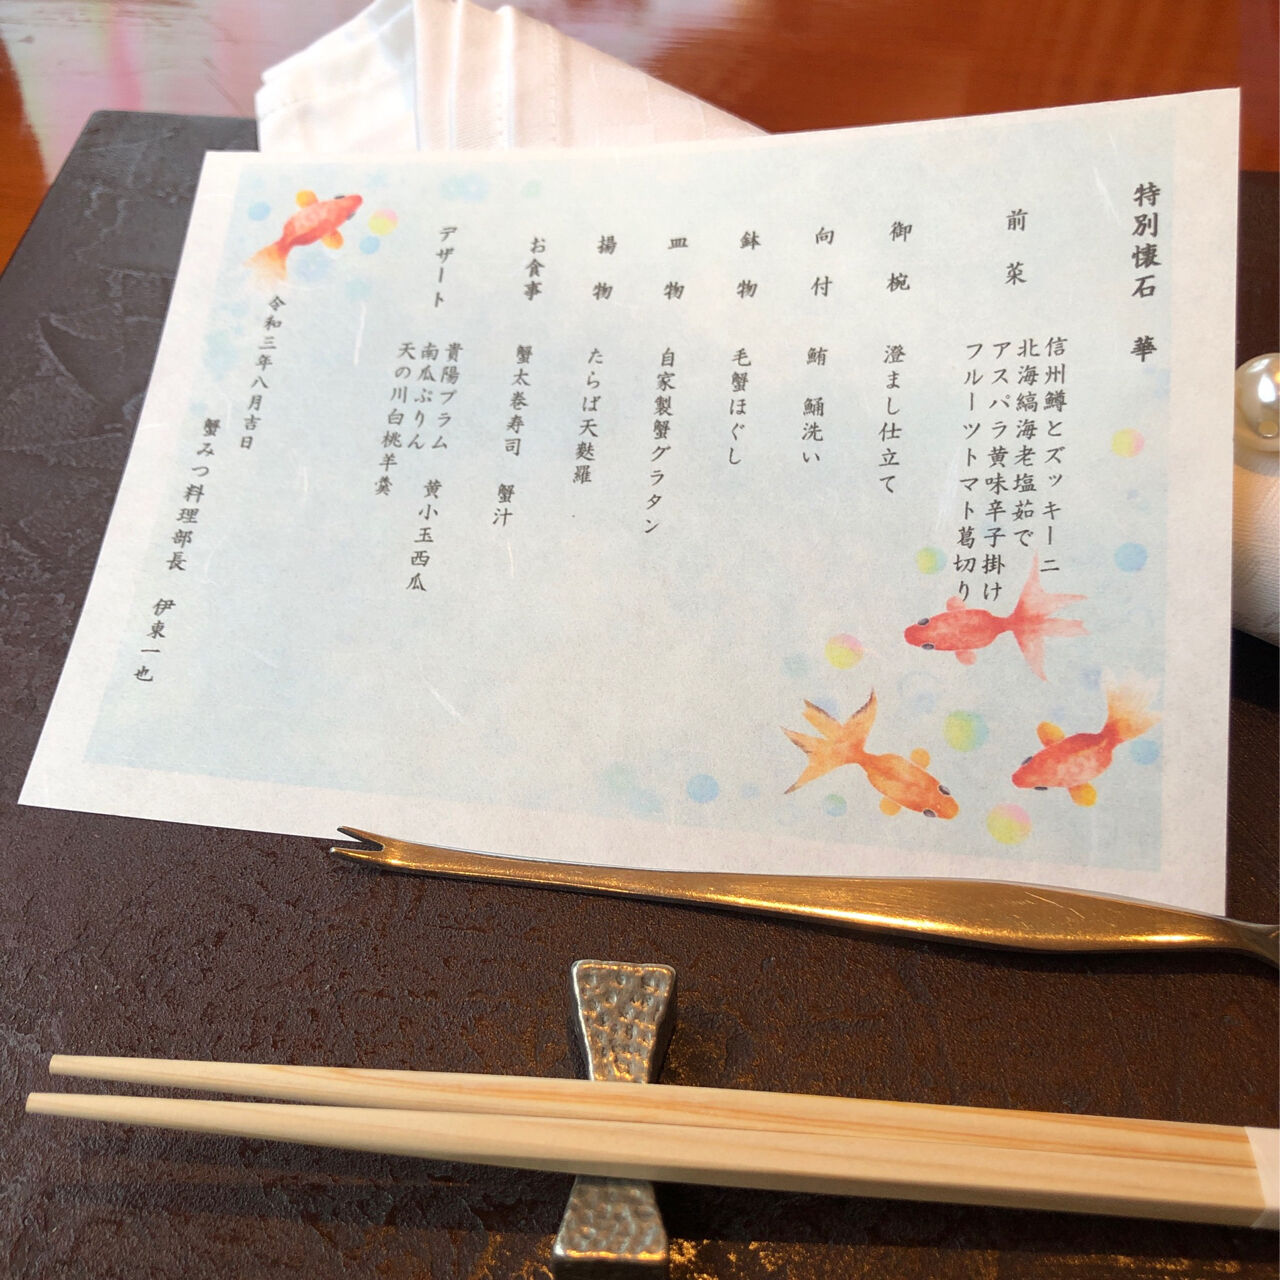 特別懐石 華
前菜
信州鱒とズッキーニ
北海縞海老塩茹で
アスパラ黄味辛子掛け
フルーツトマト葛切り
御椀
澄まし仕立て
向付
鮪 鯒洗い
鉢物
毛蟹ほぐし
皿物
自家製蟹グラタン
揚物
たらば天麩羅
お食事
蟹太巻寿司 蟹汁
デザート
貴陽プラム 黄小玉西瓜
南瓜ぷりん
天の川白桃羊羹
令和三年八月吉日
蟹みつ料理部長 伊東一也